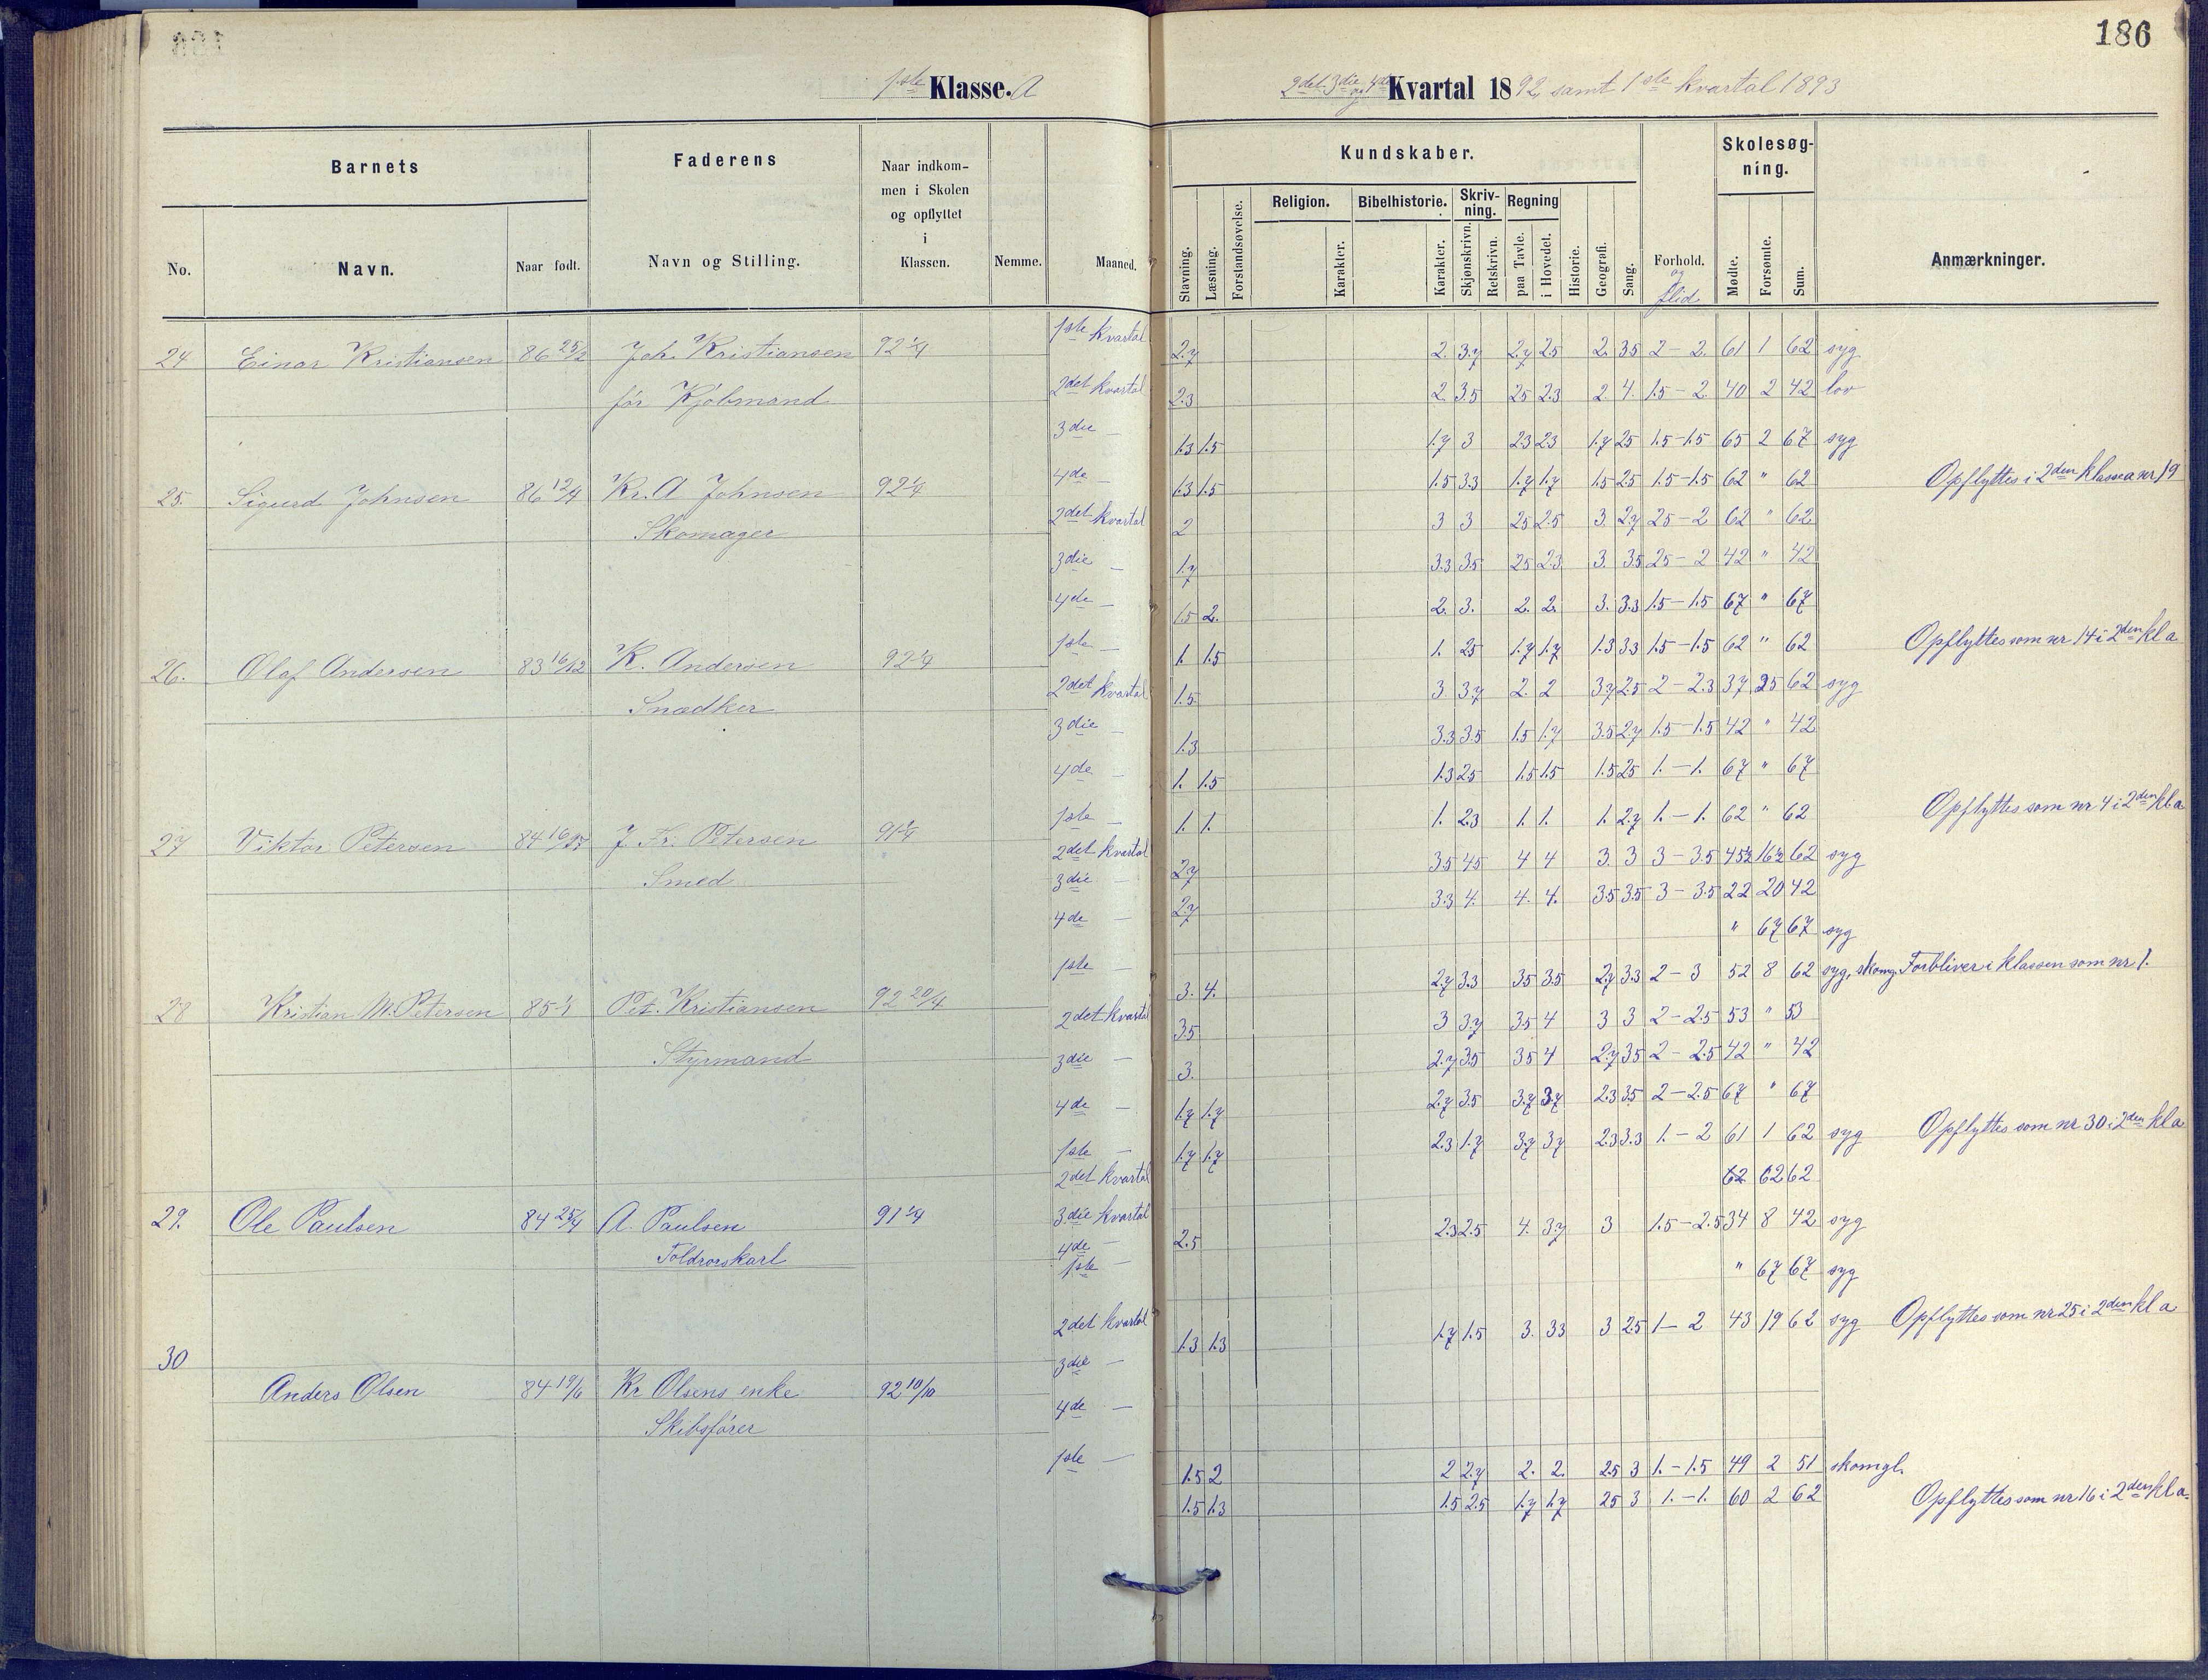 186
1ste Klasse. A
2det 3die og 4de Kvartal 1892, samt 1ste kvartal 1893
Barnets
Faderens
Naar indkom-
men i Skolen
og opflyttet
i
Klassen.
Kundskaber.
Skolesøg-
ning.
No.
Navn.
Naar født.
Navn og Stilling.
Nemme.
Maaned.
Stavning.
Læsning.
Forstandsøvelse.
Religion.
Karakter.
Bibelhistorie.
Karakter.
Skriv-
ning.
Skjønskrivn.
Retskrivn.
Regning
paa Tavle.
i Hovedet.
Historie.
Geografi.
Sang.
Forhold.
og
flid
Mødte.
Forsømte.
Sum.
Anmærkninger.
24. Einar Kristiansen 86 25/2 Joh. Kristiansen 92 1/4 1ste kvartal 2.7 2. 3.7 2.7 2.5 2. 3.5 2 – 2. 61 1 62 syg
før Kjøbmand 2det kvartal 2.3 2. 3.5 25 2.3 2. 4. 1.5 – 2. 40 2 42 lov
3die – 1.3 1.5 1.7 3 23 23 1.7 25 1.5 – 1.5 65 2 67 syg
4de – 1.3 1.5 1.5 3.3 1.7 1.7 1.5 2.5 1.5 – 1.5 62 " 62 Opflyttes i 2den klasse a nr 19
25. Sigurd Johnsen 86 12/4 Kr. A Johnsen 92 1/4
Skomager 2det kvartal 2 3 3 25 2.5 3. 2.7 25 – 2 62 " 62
3die – 1.7 3.3 3.5 25 2.3 3. 3.5 25 – 2 42 " 42
4de – 1.5 2. 2. 3. 2. 2. 3. 3.3 1.5 – 1.5 67 " 67
1ste – 1. 1.5 1. 25 1.7 1.7 1.3 33 1.5 – 1.5 62 " 62 Opflyttes som nr 14 i 2den kl a
26. Olaf Andersen 83 16/12 K. Andersen 92 1/4
Snedker 2det kvartal 1.5 3 3.7 2. 2 3.7 2.5 2 – 2.3 37 25 62 syg
3die – 1.3 3.3 3.5 1.5 1.7 3.5 2.7 1.5 – 1.5 42 " 42
4de – 1. 1.5 1.3 25 1.5 1.5 1.5 25 1. – 1. 67 " 67
1ste – 1. 1. 1. 23 1. 1. 1. 2.7 1. – 1. 62 " 62 Opflyttes som nr 4 i 2den kl a
27 Viktor Petersen J. Fr. Petersen 91 1/4
Smed 2det kvartal 2.7 3.5 4.5 4 4 3. 3 3 – 3.5 45½ 16½ 62 syg
3die – 2.7 3.3 4. 4. 4. 3.5 3.5 3 – 3.5 22 20 42
4de – " 67 67 syg
1ste – 3. 4. 2.7 3.3 3.5 3.5 2.7 3.3 2 – 3 52 8 62 syg, skomg. Forbliver i klassen som nr 1.
28 Kristian M. Petersen Pet. Kristiansen 92 20/4
Styrmand 2det kvartal 3.5 3 3.7 3.5 4 3 3 2 – 2.5 53 " 53
3die – 3. 2.7 3.5 3.5 4 2.7 3.5 2 – 2.5 42 " 42
4de – 1.7 1.7 2.7 3.5 3.7 3.7 2.3 3.5 2 – 2.5 67 " 67
1ste – 1.7 1.7 2.3 1.7 3.7 3.7 2.3 3.3 1. – 2 61 1 62 syg Opflyttes som nr 30 i 2den kl a
2det kvartal 62 62 62
29. Ole Paulsen 84 25/4 A. Paulsen 91 1/4 3die kvartal 2.5 2.3 2.5 4. 3.7 3 1.5 – 2.5 34 8 42 syg
Toldrorskarl 4de – " 67 67 syg
1ste – 1.3 1.3 1.7 1.5 3. 33 3 25 1 – 2 43 19 62 syg Opflyttes som nr 25 i 2den kl a
2det kvartal
30 3die –
Anders Olsen 84 19/6 Kr Olsens enke 92 10/10
Skibsfører 4de – 1.5 2 2 2.7 2. 2. 2.5 3 1. – 1.5 49 2 51 skomgl.
1ste – 1.5 1.3 1.5 2.5 1.7 1.7 25 3 1. – 1. 60 2 62 Opflyttes som nr 16 i 2den kl a.